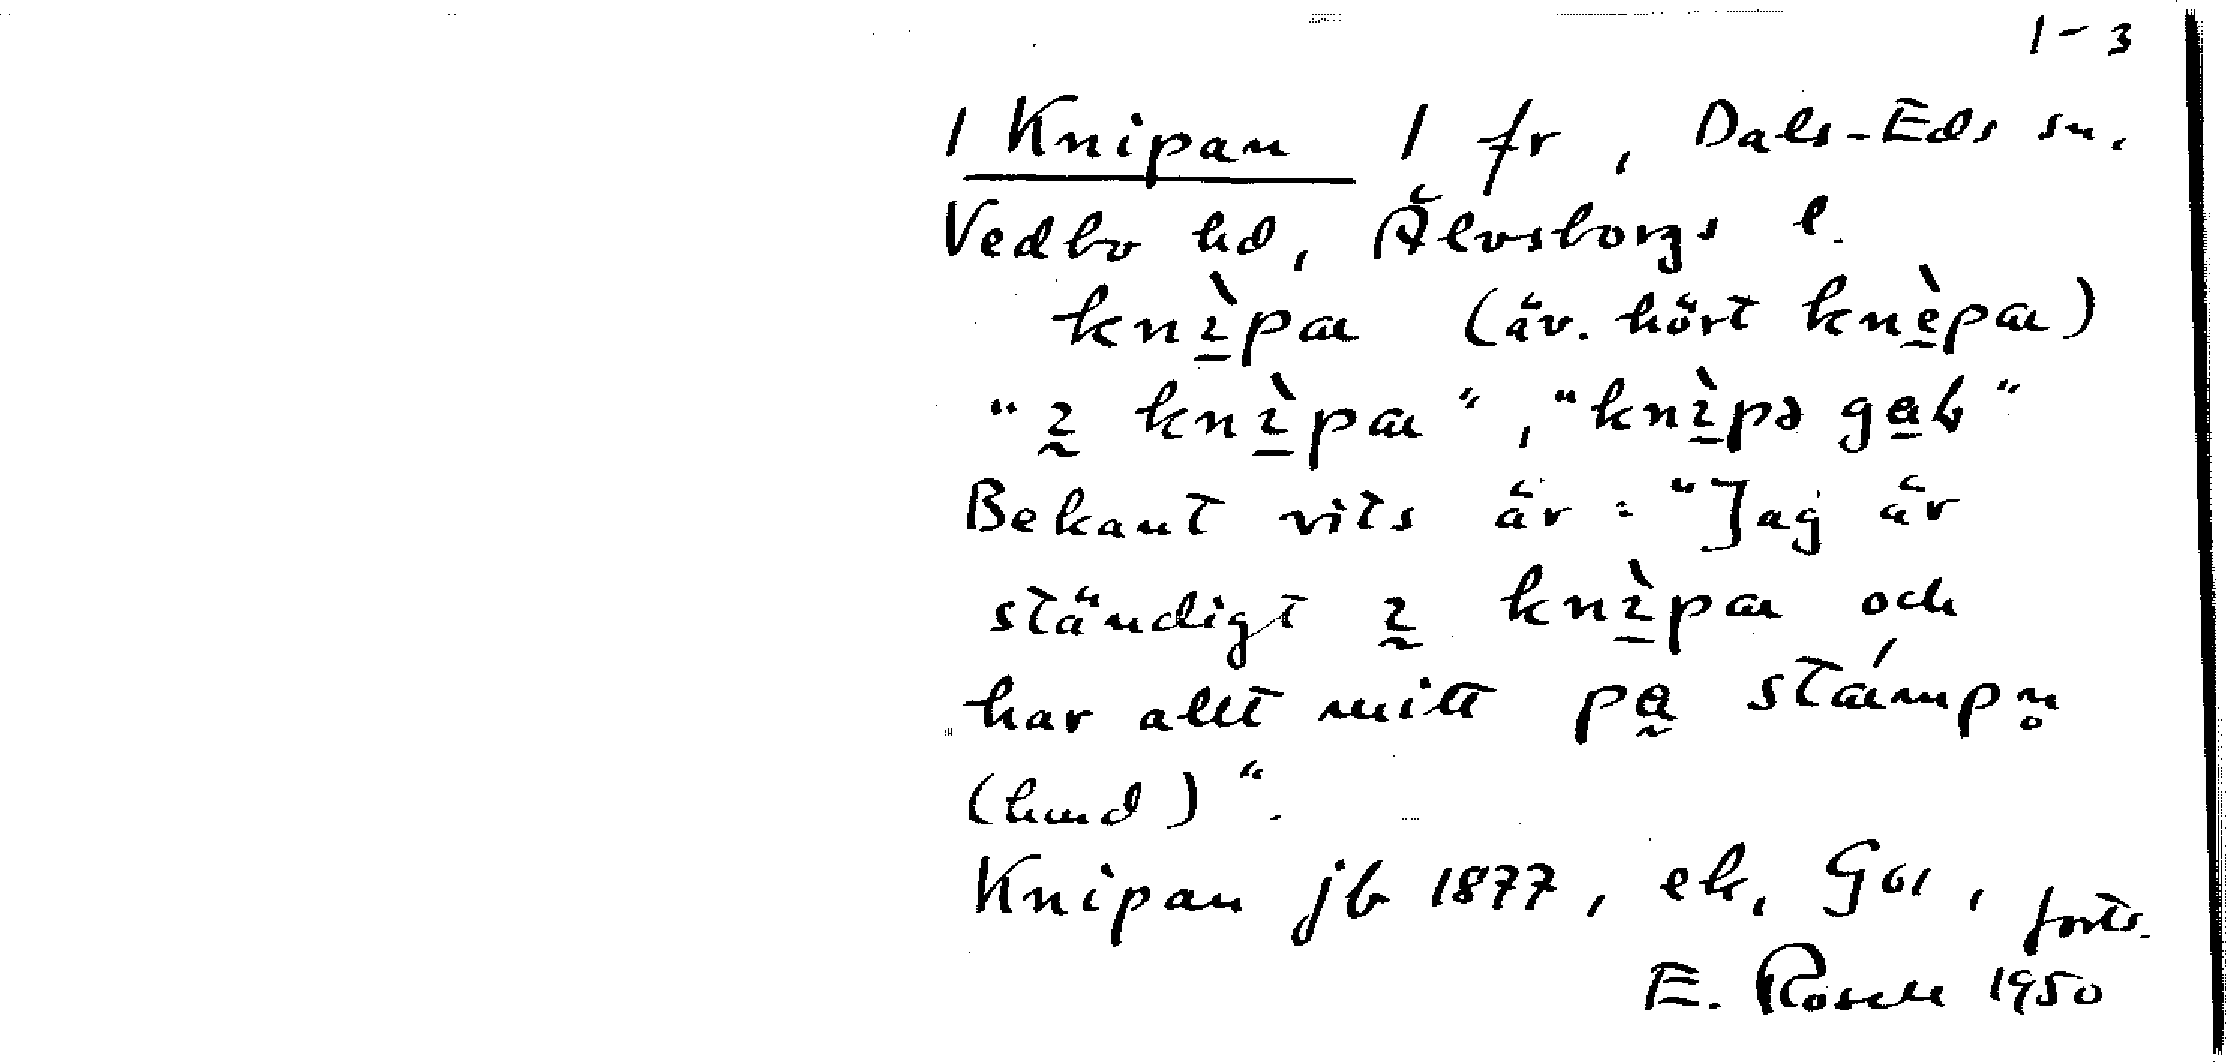 1-3
1 Knipan 1 fr, Dals-Eds sn.
Vedbo hd, Älvsborgs l.
knı̀pa (äv. hört knèpa)
"ı knı̀pa", "knı̀pə gab"
Bekant vits är: "Jag är
ständigt ı knı̀pa och
har allt mitt pa stámpn̥
(hund)".
Knipan jb 1877, ek, GÖI, forts.
E. Rosell 1950